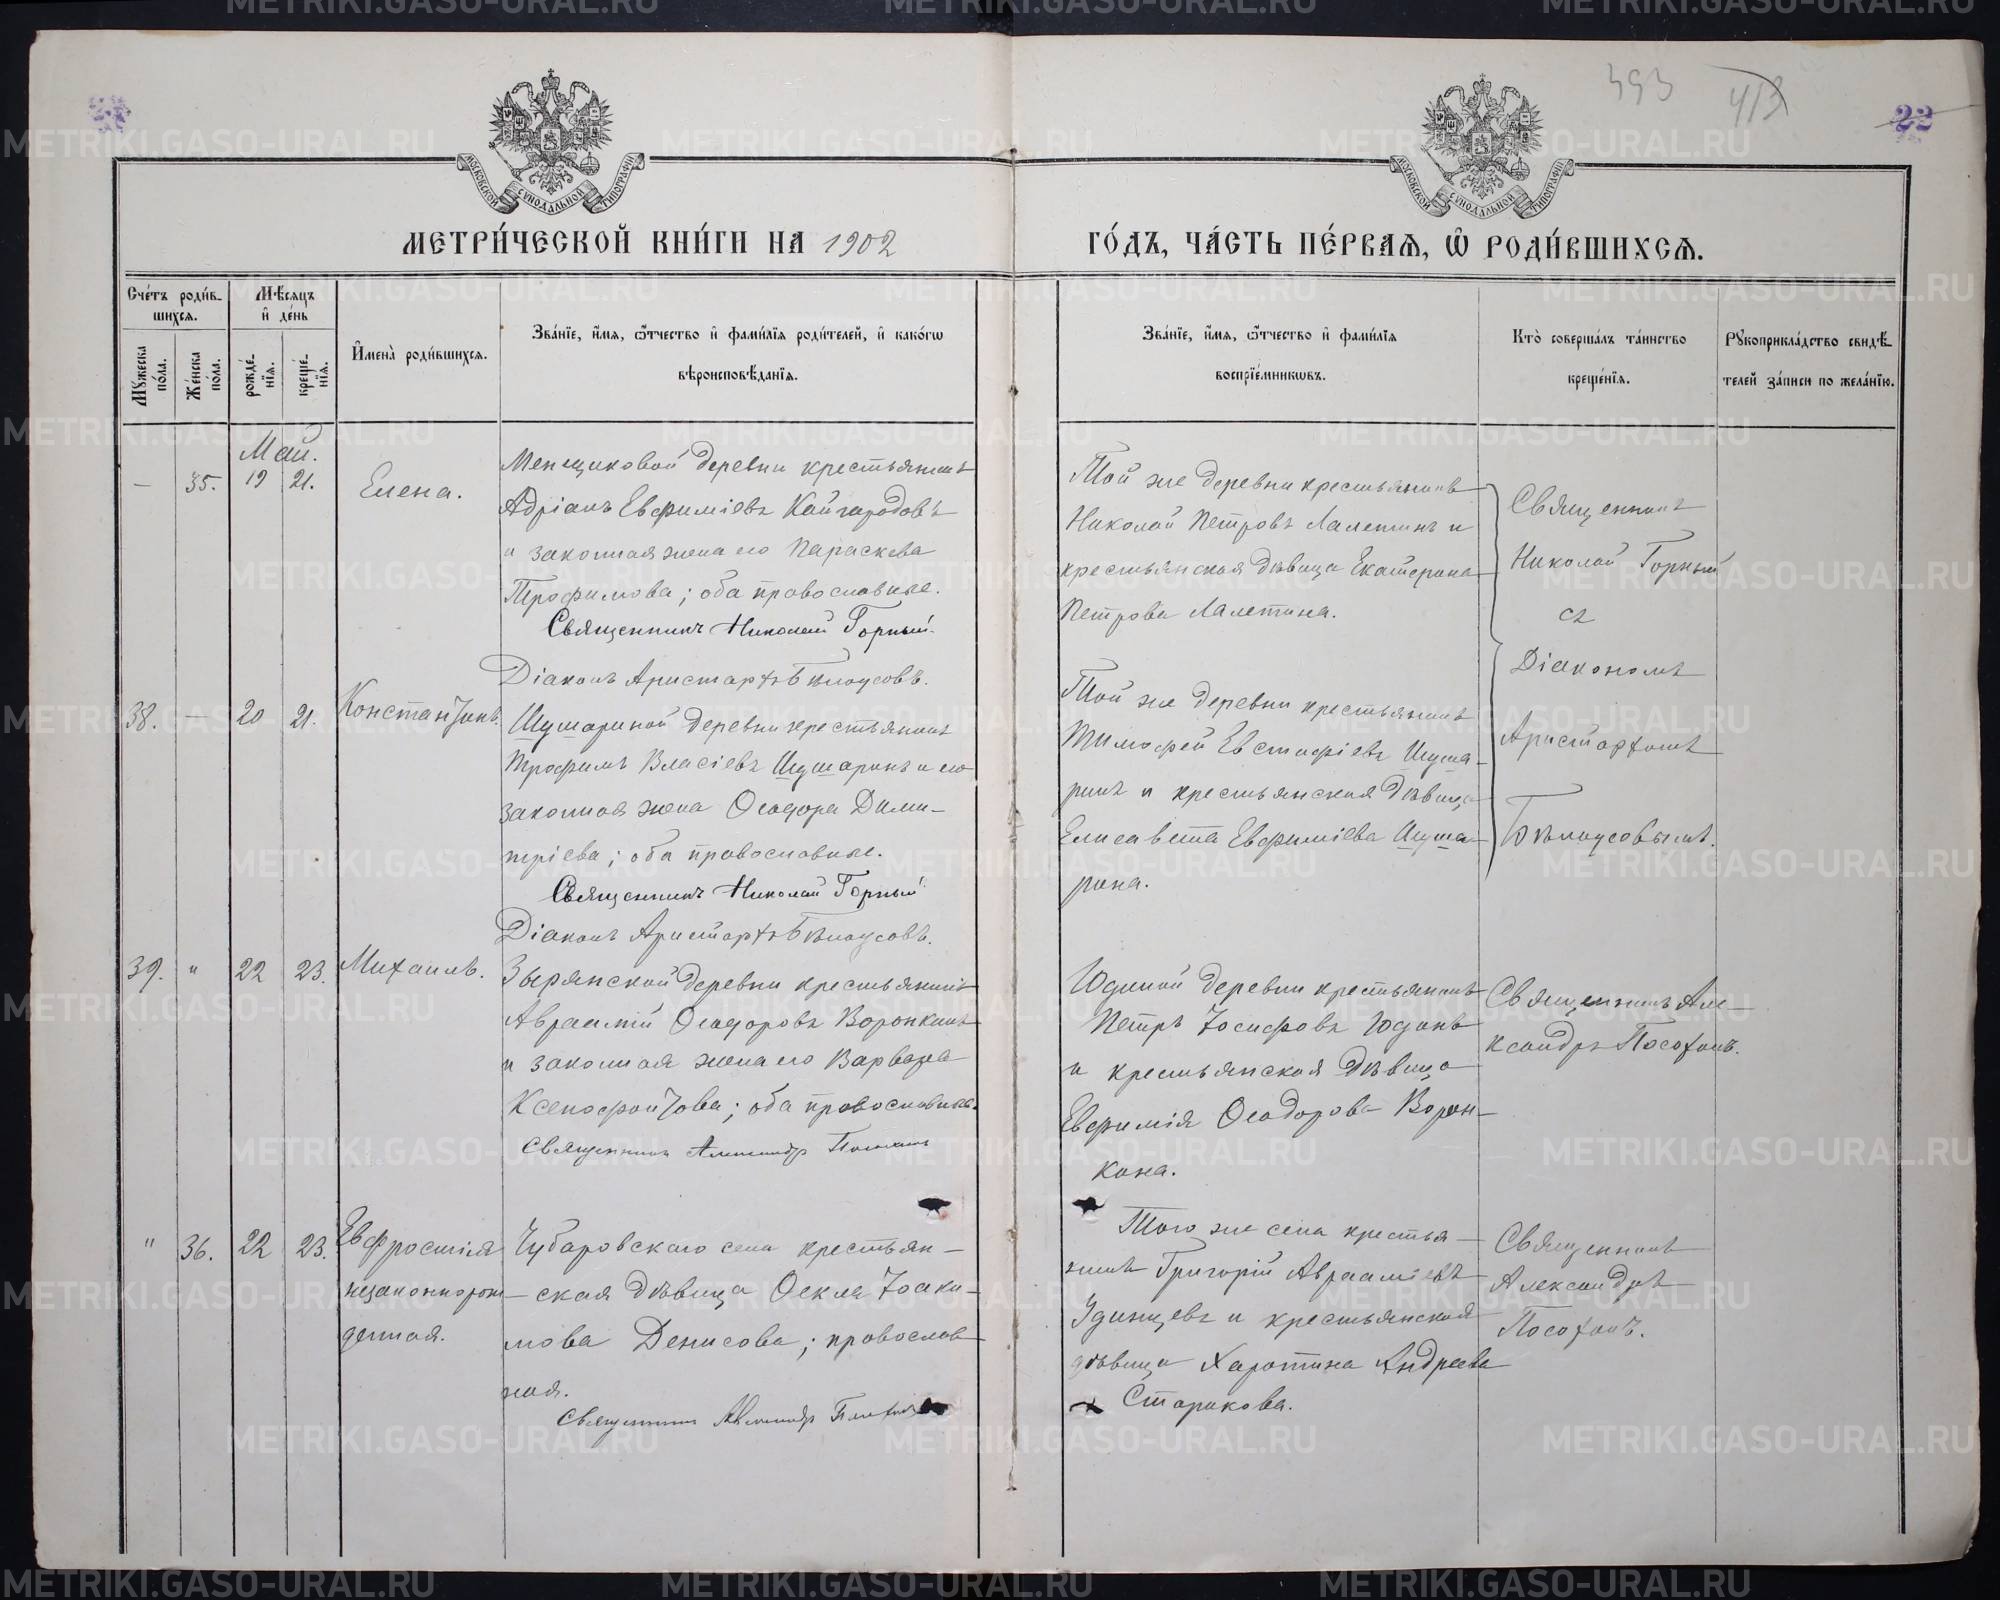 393
413
22
МОСКОВСКОЙ СѴНОДАЛЬНОЙ ТИПОГРАФІИ
МОСКОВСКОЙ СѴНОДАЛЬНОЙ ТИПОГРАФІИ
МЕТРИ́ЧЕСКОЙ КНИ́ГИ НА 1902
ГО́ДЪ, ЧА́СТЬ ПЕ́РВАѦ, Ѡ҆ РОДИ́ВШИХСѦ.
Сче́тъ роди́в-
шихсѧ.
Мѣ́сяцъ
и҆ де́нь
Мꙋ́жеска
по́ла.
Же́нска
по́ла.
рожде́-
нїѧ.
креще́-
нїѧ.
И҆мена̀ роди́вшихсѧ.
Зва́нїе, и҆́мѧ, ѻ҆́тчество и҆ фами́лїѧ роди́телей, и҆ како́гѡ
вѣроисповѣ́данїѧ.
Зва́нїе, и҆́мѧ, ѻ҆́тчество и҆ фами́лїѧ
воспрїе́мникѡвъ.
Кто̀ соверша́лъ та́инство
креще́нїѧ.
Рꙋкоприкла́дство свидѣ́-
телей за́писи по жела́нїю.
Май.
— 35. 19 21. Елена.
Менщиковой деревни крестьянинъ
Адріанъ Евфиміевъ Кайгородовъ
и законная жена его Параскева
Трофимова; оба православные.
Священникъ Николай Горный.
Діаконъ Аристархъ Бѣлоусовъ.
Той же деревни крестьянинъ
Николай Петровъ Лалетинъ и
крестьянская дѣвица Екатерина
Петрова Лалетина.
Священникъ
Николай Горный
съ
Діакономъ
Аристархомъ
Бѣлоусовымъ.
38. — 20 21. Константинъ.
Шушариной деревни крестьянинъ
Трофимъ Власіевъ Шушаринъ и его
законная жена Ѳеодора Дими-
тріева; оба православные.
Священникъ Николай Горный
Діаконъ Аристархъ Бѣлоусовъ.
Той же деревни крестьянинъ
Тимофей Евстафіевъ Шуша-
ринъ и крестьянская дѣвица
Елисавета Евфиміева Шуша-
рина.
39. " 22 23. Михаилъ.
Зырянской деревни крестьянинъ
Авраамій Ѳеодоровъ Воронкинъ
и законная жена его Варвара
Ксенофонтова; оба православные.
Священникъ Александръ Посохинъ
Юдиной деревни крестьянинъ
Петръ Іосифовъ Юдинъ
и крестьянская дѣвица
Евфимія Ѳеодорова Ворон-
кина.
Священникъ Але-
ксандръ Посохинъ.
" 36. 22 23. Евфросинія
незаконнорож-
денная.
Чубаровскаго села крестьян-
ская дѣвица Ѳекла Іоаки-
мова Денисова; православ-
ная.
Священникъ Александръ Посохинъ
Того же села крестья-
нинъ Григорій Аврааміевъ
Удинцевъ и крестьянская
дѣвица Харитина Андреева
Старикова.
Священникъ
Александръ
Посохинъ.
METRIKI.GASO-URAL.RU